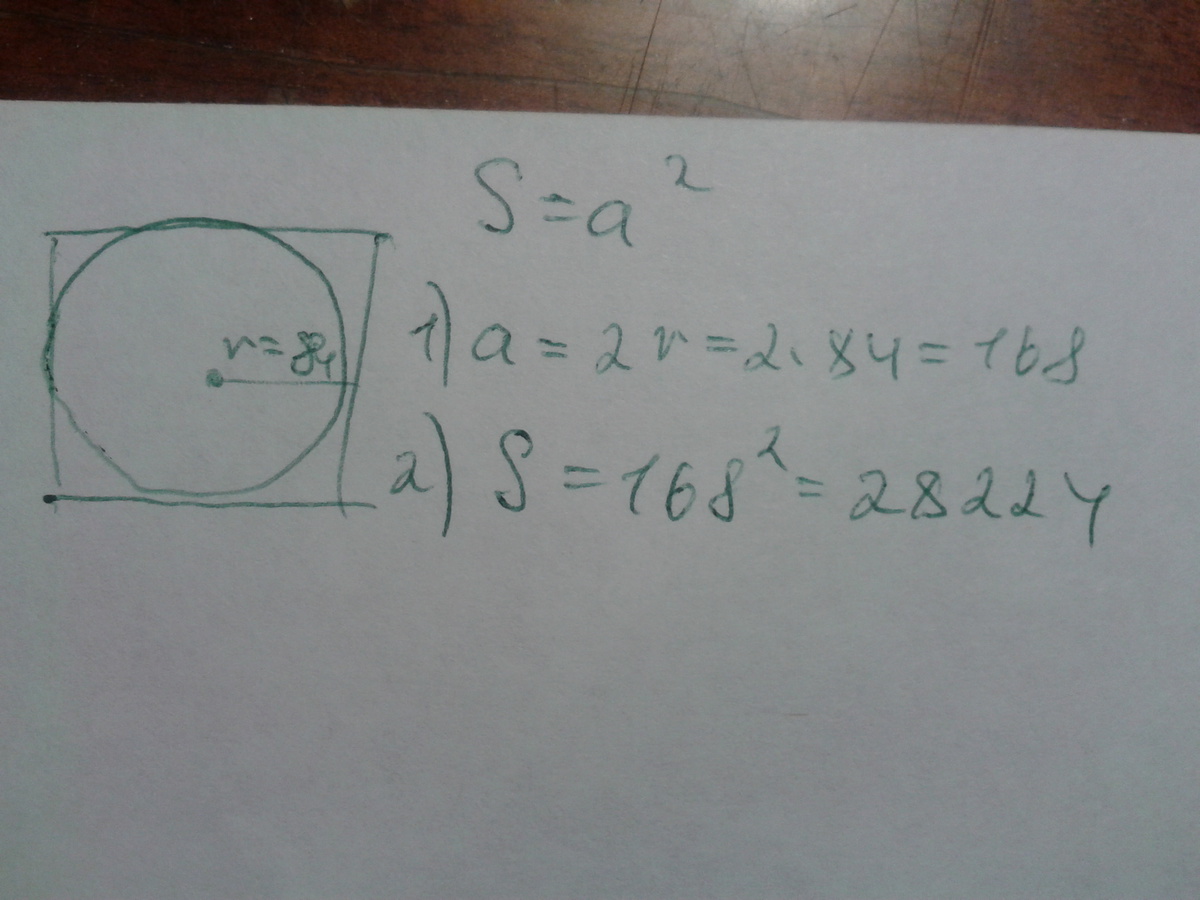 S = a²
r = 84
1) a = 2r = 2 · 84 = 168
2) S = 168² = 28224